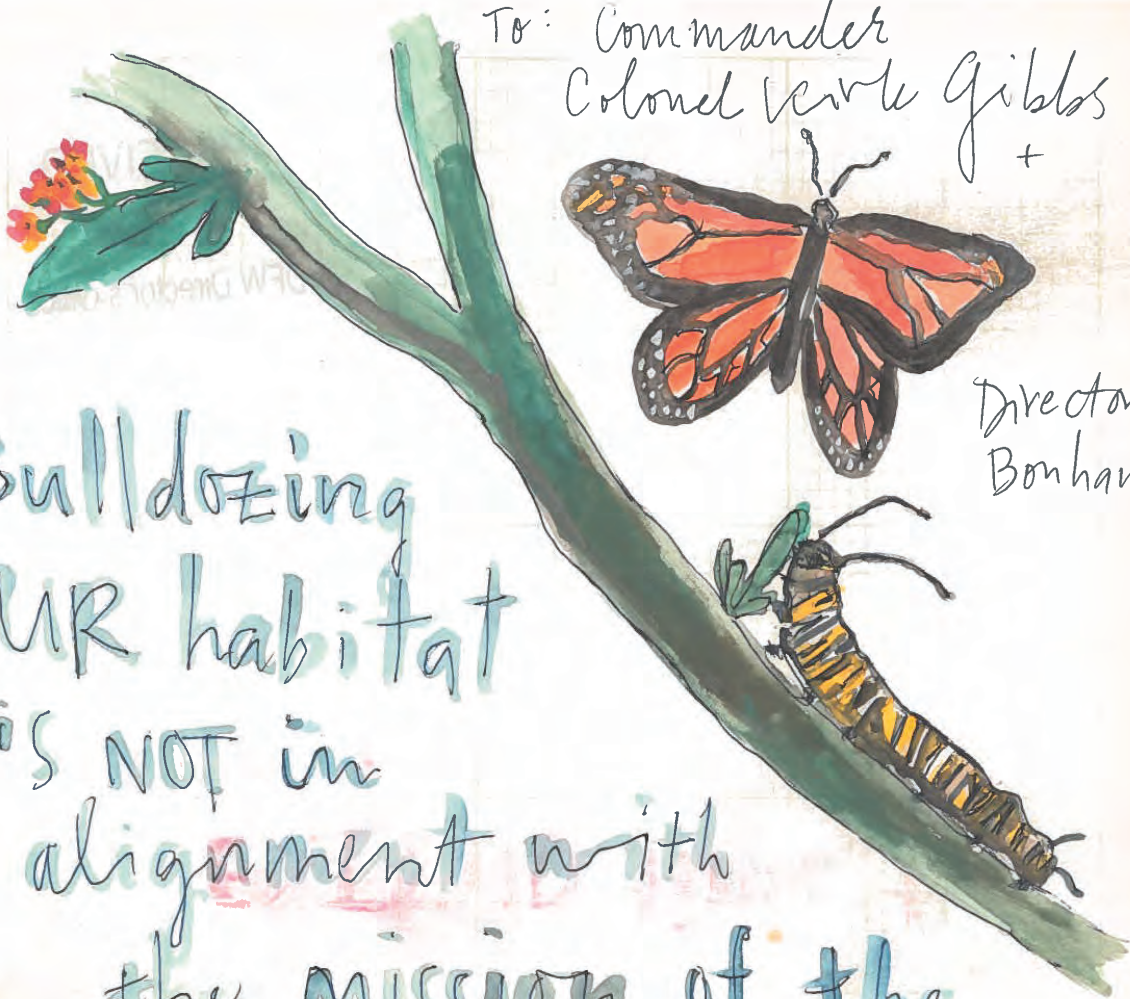 To: Commander
Colonel Kirk Gibbs
+
Director
Bonham
Bulldozing
OUR habitat
is NOT in
alignment with
the mission of the